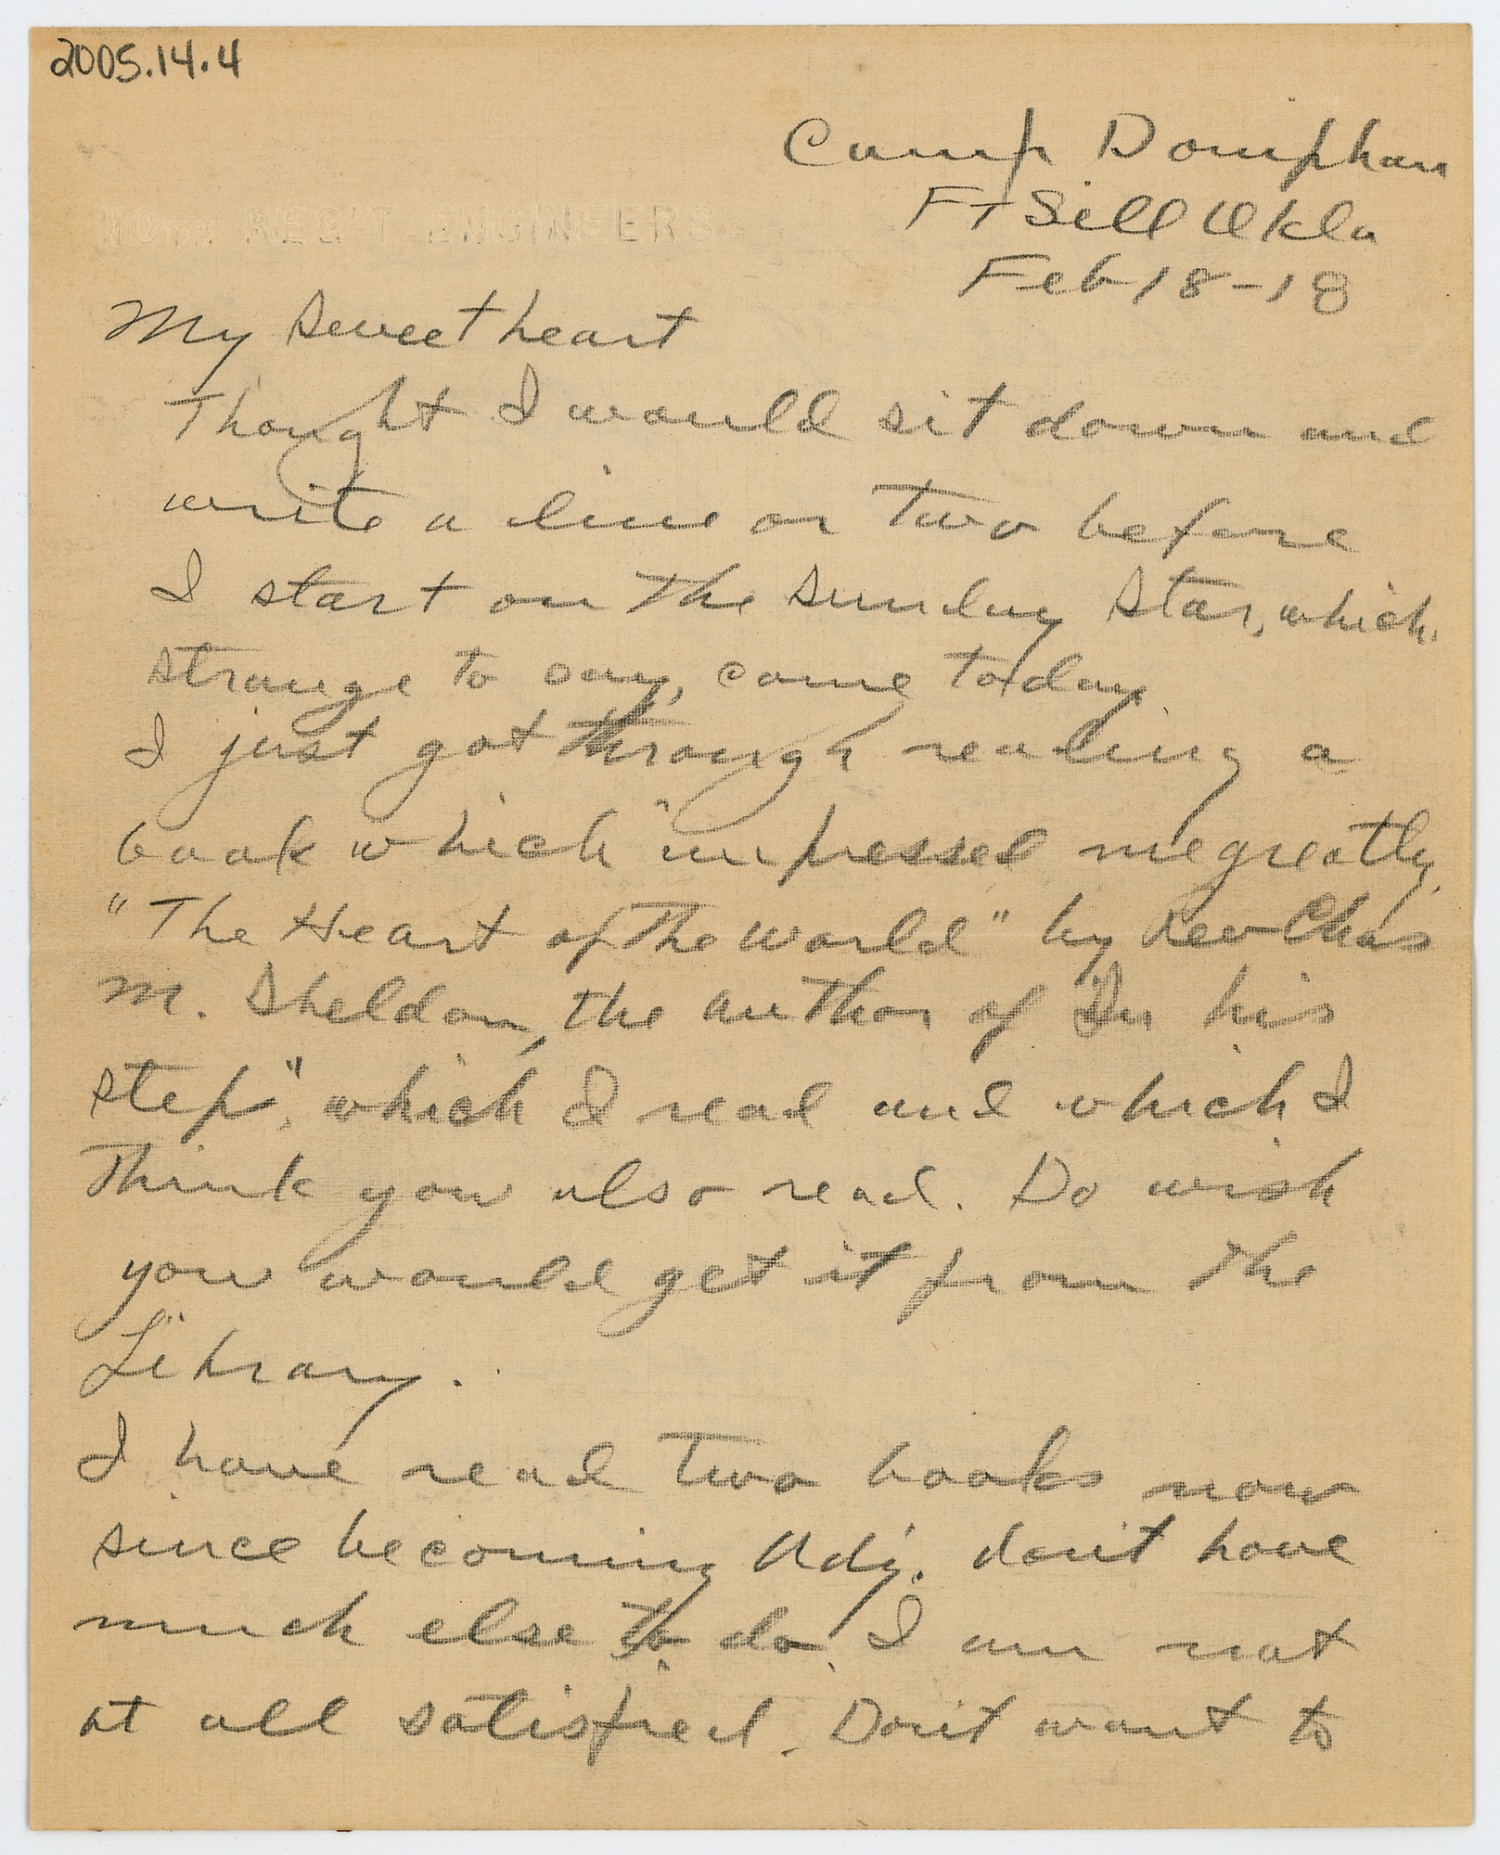 2005.14.4
Camp Doniphan
Ft Sill Okla
REG'T ENGINEERS
Feb 18-18
My Sweetheart
Thought I would sit down and
write a line or two before
I start on the Sunday Star, which,
strange to say, came today
I just got through reading a
book which impressed me greatly,
"The Heart of The World" by Rev Chas
M. Sheldon, the author of "In his
step", which I read and which I
think you also read. Do wish
you would get it from the
Library.
I have read two books now
since becoming Adj. don't have
much else to do. I am not
at all satisfied. Don't want to